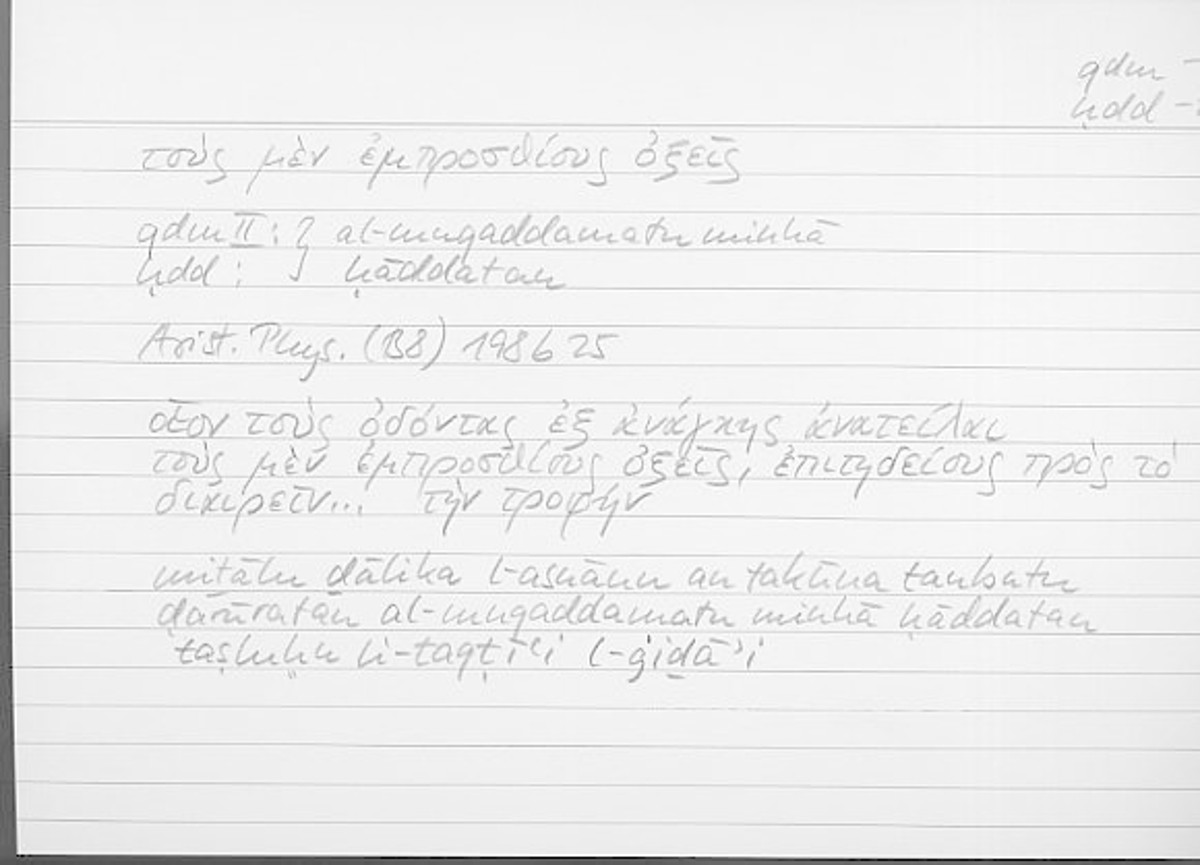 qdm –
ḥdd –
τοὺς μὲν ἐμπροσθίους ὀξεῖς
qdm II : } al-muqaddamatu minhā
ḥdd : } ḥāddatan
Arist. Phys. (B8) 198b25
οἷον τοὺς ὀδόντας ἐξ ἀνάγκης ἀνατεῖλαι
τοὺς μὲν ἐμπροσθίους ὀξεῖς, ἐπιτηδείους πρὸς τὸ
διαιρεῖν... τὴν τροφήν
mitālu ḏālika l-asnānu an takūna tanbutu
ḍarūratan al-muqaddamatu minhā ḥāddatan
taṣluḥu li-taqṭīʿi l-ġiḏāʾi